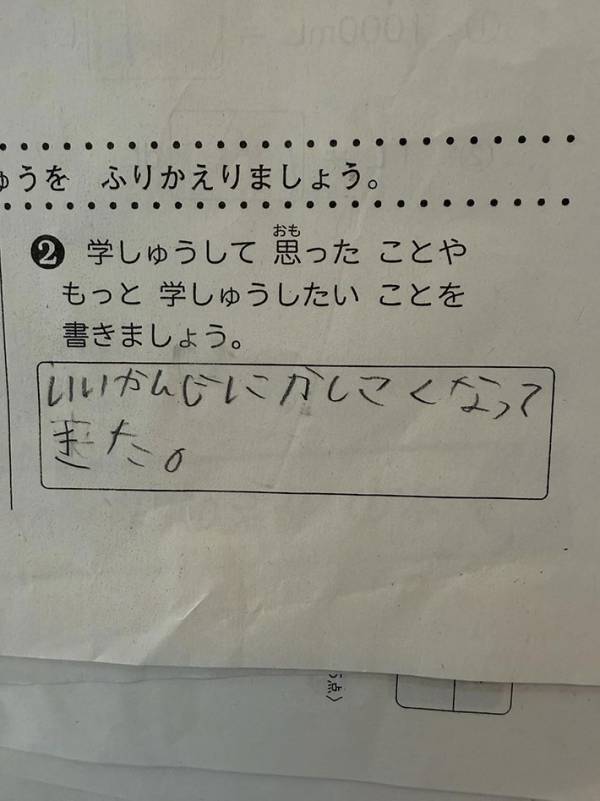 ゅうを ふりかえりましょう。
❷ 学しゅうして 思った ことや
おも
もっと 学しゅうしたい ことを
書きましょう。
いいかんじにかしこくなって
きた。
点〉